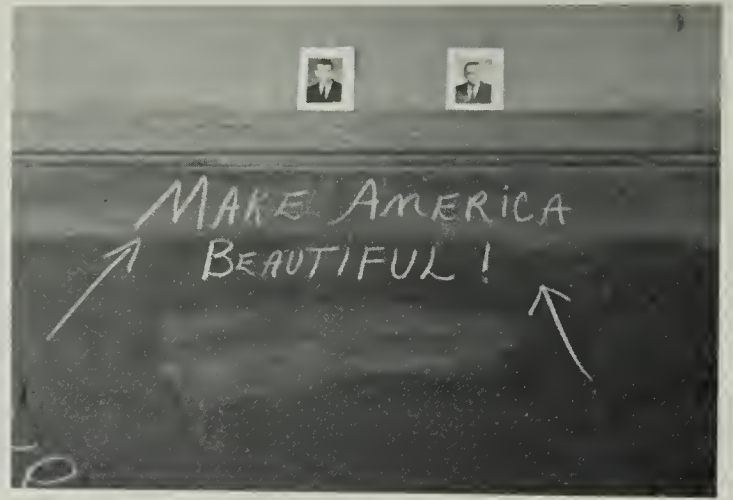 MAKE AMERICA
BEAUTIFUL!